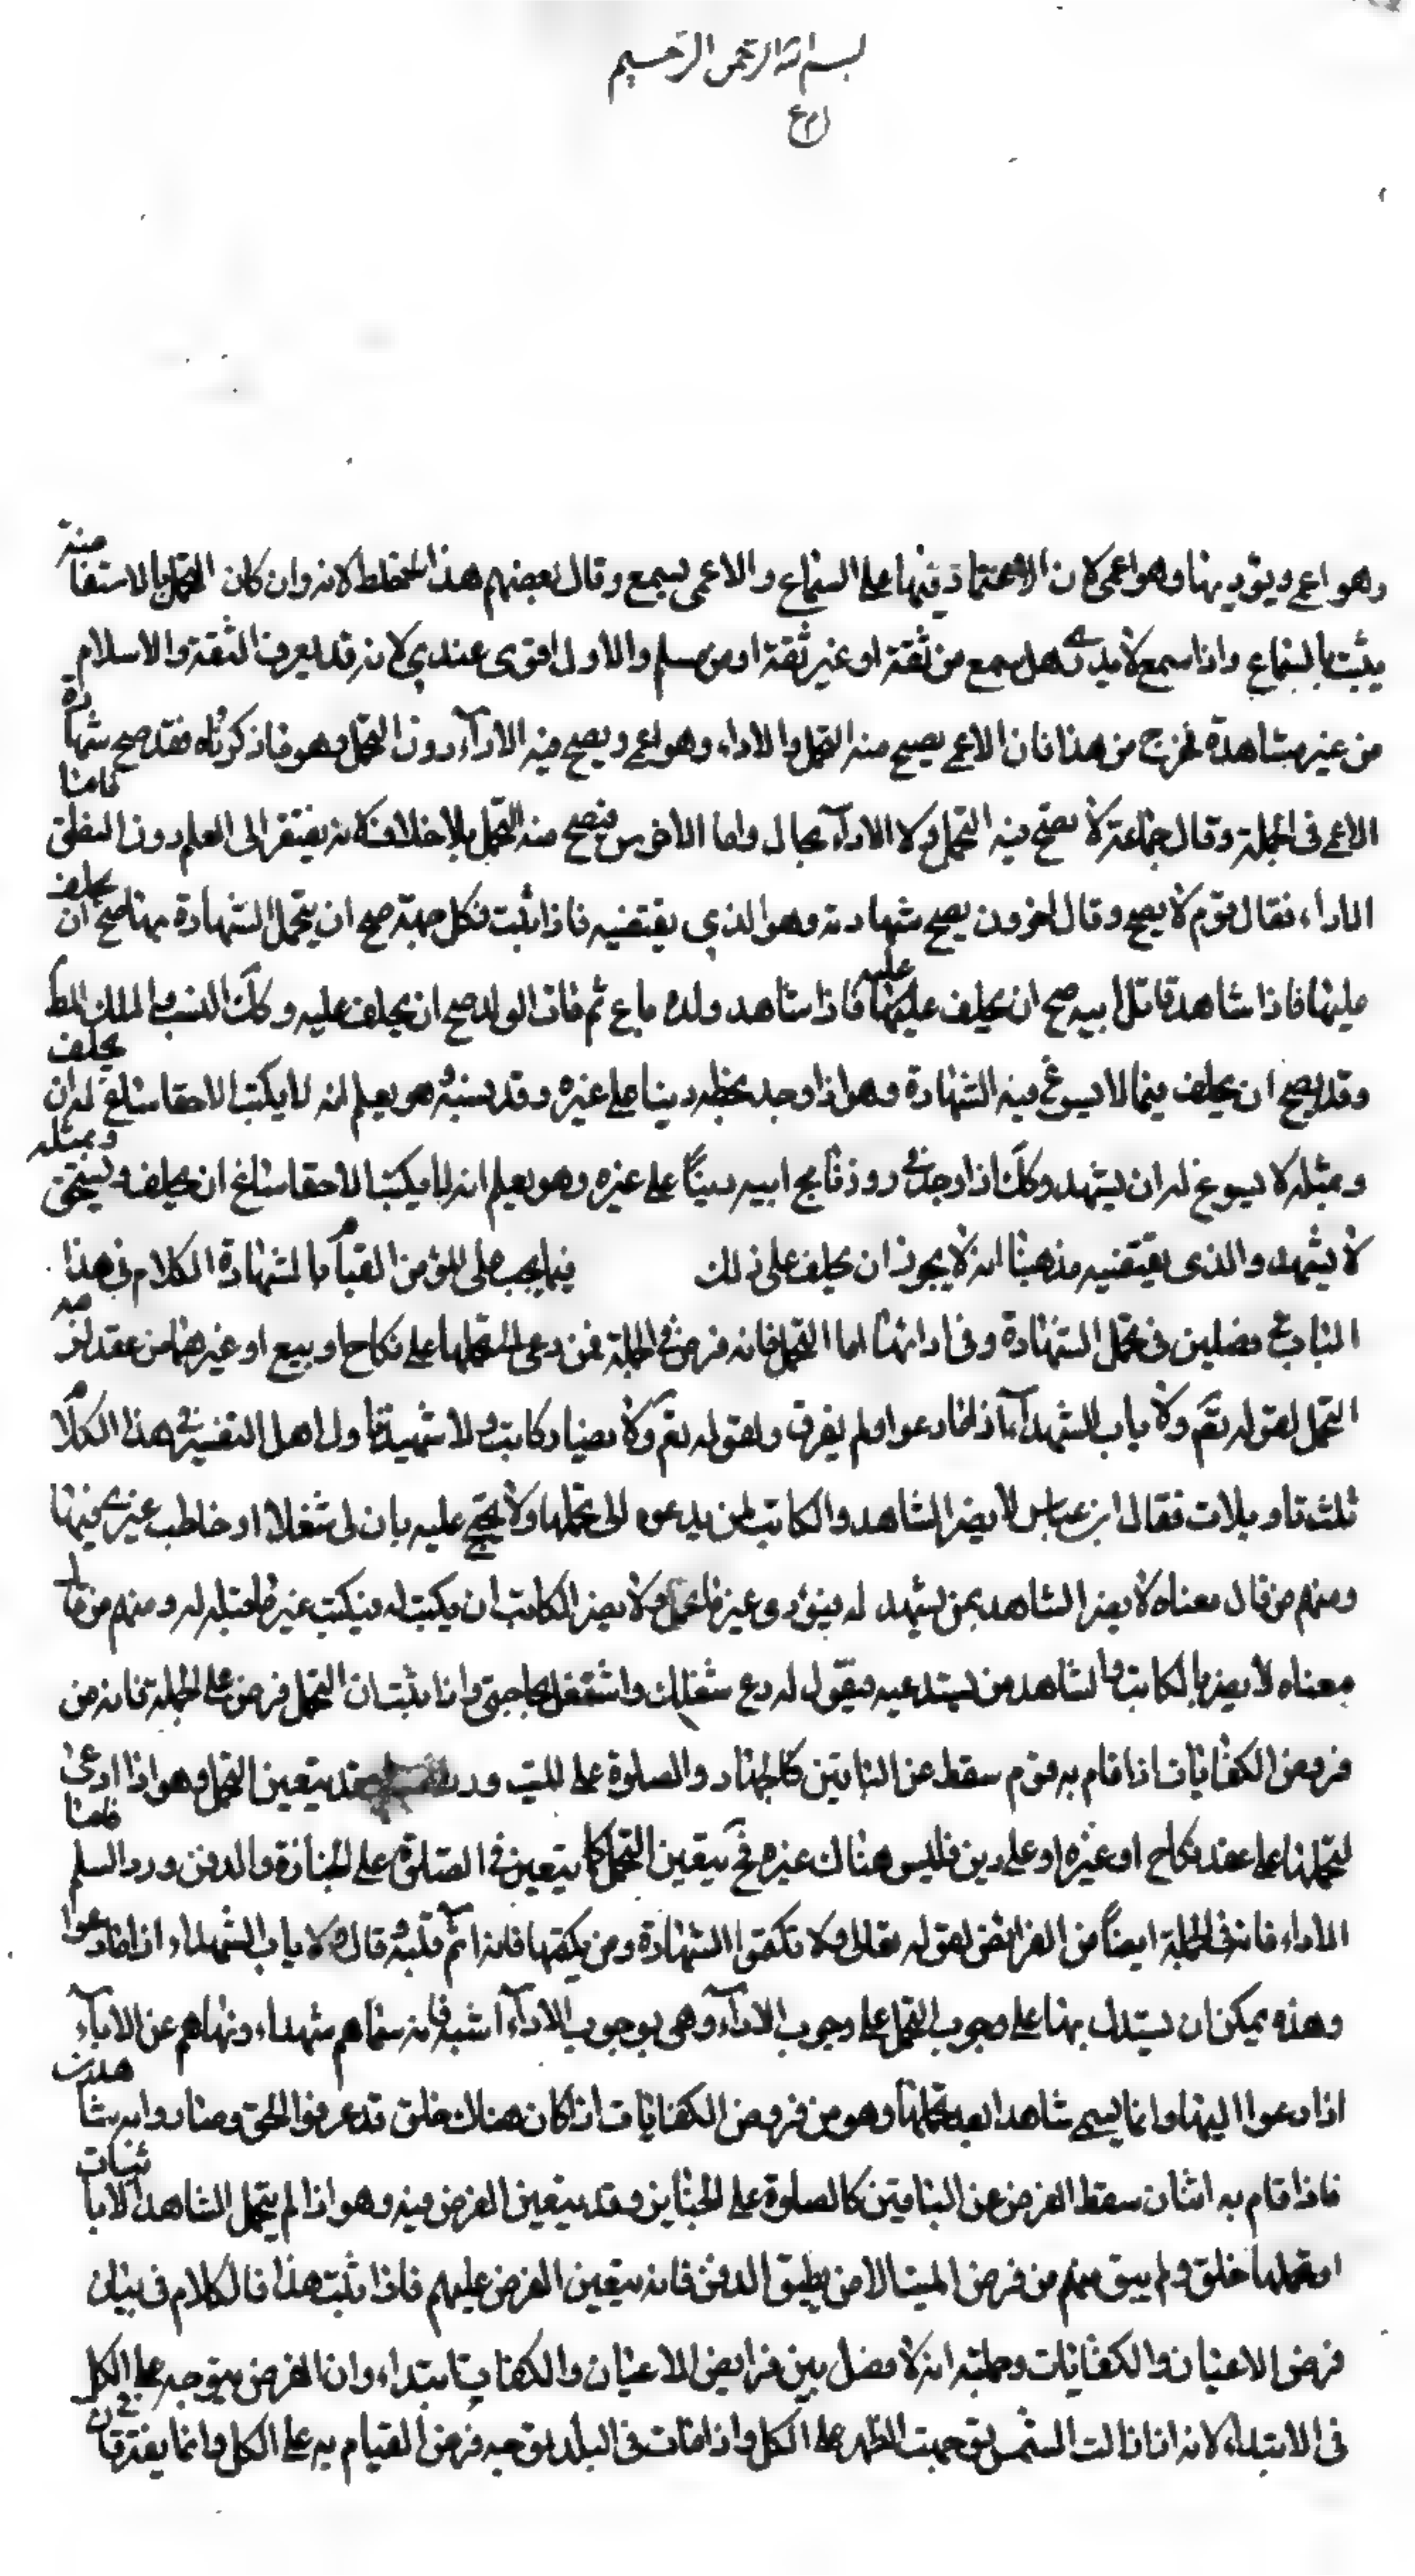 بسم الله الرحمن الرحيم
وهو اعمى ويؤديها وهو اعمى لان الاعتماد فيها على السماع والاعمى يسمع وقال بعضهم هذا لانه وان كان التحمل بالاستفاضة
يثبت بالسماع واذا سمع لا يدرى هل سمع من ثقة او غير ثقة او من مسلم والاول اقوى عندي لانه قد يعرف الثقة والاسلام
من غير مشاهدة فخرج من هذا فان الاعمى يصح منه التحمل والاداء وهو اعمى ويصح منه الاداء دون التحمل وهو فاذكرناه فقد صح شهادة
الاعمى فى الجملة وقال جماعة لا يصح منه التحمل ولا الاداء بحال واما الاخرس فيصح منه التحمل بلا خلاف لانه يفتقر الى العلم دون النطق فامنا
الاداء فقال قوم لا يصح وقال اخرون يصح شهادته وهو الذي يقتضيه فاذا ثبت فكل جهة صح ان يتحمل الشهادة بها صح ان يحلف
عليها فاذا شاهد قاتل ابيه صح ان يحلف عليه فاذا شاهد ولده باع ثم فات الولد صح ان يحلف عليه وكك النسب والملك المط
وقد يصح ان يحلف فيما لا يسوغ فيه الشهادة وهو اذا وجد بخطه دينا على غيره وقد نسيه هو يعلم انه لا يكتب الا حقا ساغ له ان يحلف
وبمثله لا يسوغ له ان يشهد وكك اذا وجد فى روزنامج ابيه دينًا على غيره وهو يعلم انه لا يكتب الا حقا ساغ ان يحلف ويستحق وبمثله
لا يشهد والذى يقتضيه مذهبنا انه لا يجوز ان يحلف على ذلك فيما يجب على المؤمن القيام بالشهادة الكلام فى هذا
الباب فى فصلين فى تحمل الشهادة وفى ادائها اما التحمل فانه فرض فى الجملة فمن دعى الى تحملها على نكاح او بيع او غيرهما من عقد لزمه
التحمل لقوله تعم ولا ياب الشهداء اذا ما دعوا ولم يفرق ولقوله تعم ولا يضار كاتب ولا شهيد فاول اهل التفسير هذا الكلام
ثلث تاويلات فقال ابن عباس لا يضر الشاهد والكاتب لمن يدعوه الى تحملها ولا يحتج عليه بان لى شغلا او خاطب غيرى فيها
ومنهم من قال معناه لا يضر الشاهد بمن يشهد له فيؤدى غير ما تحمل ولا يضر الكاتب ان يكتب له فيكتب غير ما قيل له ومنهم من قال
معناه لا يضر بالكاتب والشاهد من يستدعيه فيقول له دع شغلك واشتغل بحاجتى واذا ثبت ان التحمل فرض على الجملة فانه من
فروض الكفايات اذا قام به قوم سقط عن الباقين كالجهاد والصلوة على الميت وقد يتعين التحمل وهو اذا ادعى
لتحملها على عقد نكاح او غيره او على دين فليس هناك غيره فح يتعين التحمل كما يتعين فى الصلوة على الجنازة والدفن ورد السلم فامنا
الاداء فانه فى الجملة ايضًا من الفرائض لقوله تعالى ولا تكتموا الشهادة ومن يكتمها فانه اثم قلبه قال ولا ياب الشهداء اذا ما دعوا
وهذه يمكن ان يستدل بها على وجوب التحمل على وجوب الاداء وهى بوجوب الاداء اشبه فانه سماهم شهداء ونهاهم عن الاباء
اذا دعوا اليها وانما يسمى شاهدا بعد تحملها وهو من فروض الكفايات اذا كان هناك خلق قد عرفوا الحق وصاروا به شاهدين
فاذا قام به اثنان سقط الفرض عن الباقين كالصلوة على الجنايز وقد يتعين الفرض فيه وهو اذا لم يتحمل الشاهد الا اثنان
او تحملها خلق ولم يبق منهم من فرض الميت الا من يطيق الدفن فانه يتعين الفرض عليهم فاذا ثبت هذا فالكلام فى بيان
فرض الاعيان والكفايات وجملته انه لا فصل بين فرايض الاعيان والكفايات ابتداء وان الفرض يتوجه على الكل
فى الابتداء لانه اذا زالت الشمس توجهت الظهر على الكل واذا مات فى البلد توجه فرض القيام به على الكل وانما يفترقان فى